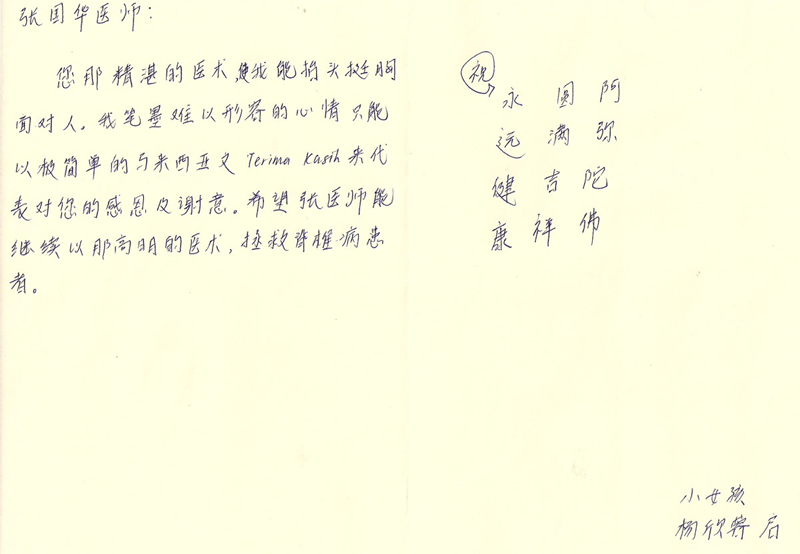 张国华医师：
您那精湛的医术,使我能抬头挺胸
面对人。我笔墨难以形容的心情只能
以极简单的马来西亚文 Terima Kasih 来代
表对您的感恩及谢意。希望张医师能
继续以那高明的医术，拯救脊椎病患
者。
祝
永远健康
圆满吉祥
阿弥陀佛
小女孩
杨欣 启